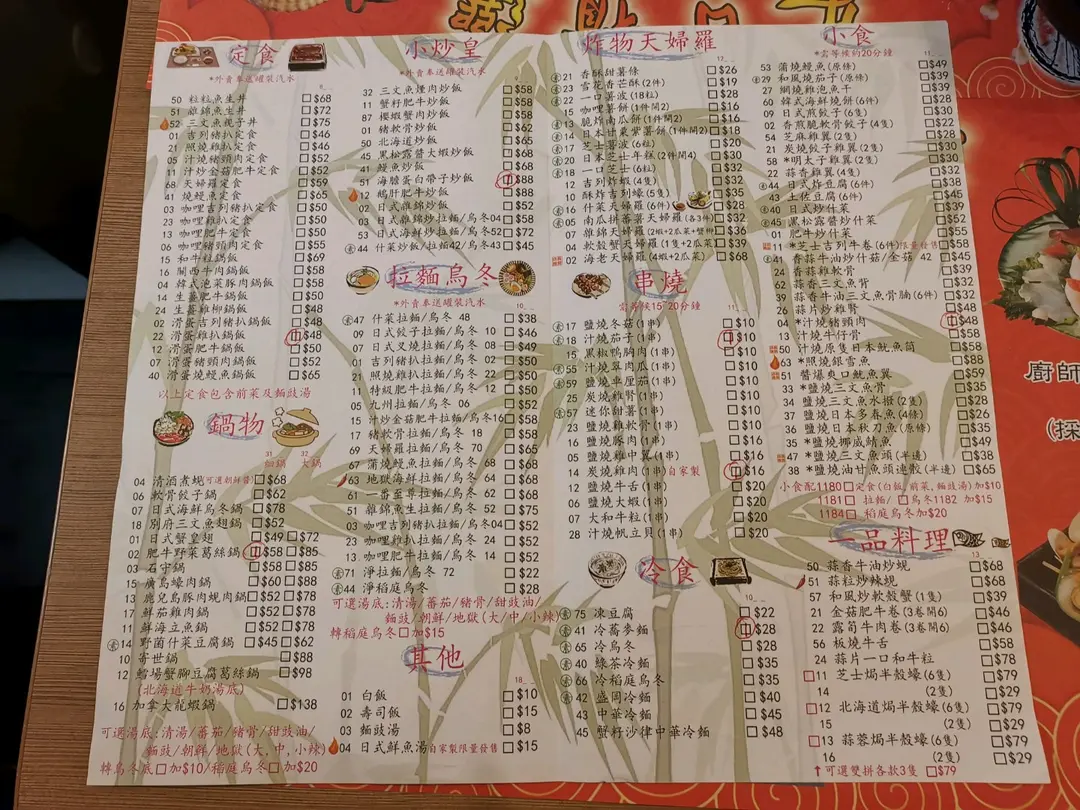 定食
*外賣奉送罐裝汽水
50 粒粒魚生丼 $68
51 雜錦魚生丼 $72
52 三文魚親子丼 $75
01 吉列豬扒定食 $46
21 照燒雞扒定食 $46
05 汁燒豬頸肉定食 $52
11 汁炒金菇肥牛定食 $52
68 天婦羅定食 $59
41 燒鰻魚定食 $65
03 咖哩吉列豬扒定食 $50
23 咖哩雞扒定食 $50
13 咖哩肥牛定食 $50
06 咖哩豬頸肉定食 $55
15 和牛粒鍋飯 $69
16 關西牛肉鍋飯 $58
04 韓式泡菜豚肉鍋飯 $58
14 生薑肥牛鍋飯 $50
24 生薑雞柳鍋飯 $50
02 滑蛋吉列豬扒鍋飯 $48
22 滑蛋雞扒鍋飯 $48
12 滑蛋肥牛鍋飯 $50
07 滑蛋豬頸肉鍋飯 $52
40 滑蛋燒鰻魚鍋飯 $65
以上定食包含前菜及麵豉湯
鍋物
31 細鍋 32 大鍋
04 清酒煮蜆(可選朝鮮醬) $68
06 軟骨餃子鍋 $62
07 日式海鮮烏冬鍋 $78
18 別府三文魚翅鍋 $52
01 日式蟹皇翅 $49 $72
02 肥牛野菜葛絲鍋 $58 $85
03 石守鍋 $58 $85
15 廣島蠔肉鍋 $60 $88
13 鹿兒島豚肉蜆肉鍋 $52 $78
17 鮮茄雞肉鍋 $52 $78
11 鮮海立魚鍋 $52 $78
素 14 野菌什菜豆腐鍋 $45 $62
10 寄世鍋 $88
12 鱈場蟹腳豆腐葛絲鍋 $98
(北海道牛奶湯底)
16 加拿大龍蝦鍋 $138
可選湯底:清湯/蕃茄/豬骨/甜豉油/
麵豉/朝鮮/地獄(大,中,小辣)
轉烏冬底 加$10/稻庭烏冬 加$20
小炒皇
*外賣奉送罐裝汽水
32 三文魚燻肉炒飯 $58
11 蟹籽肥牛炒飯 $58
87 櫻蝦蟹肉炒飯 $58
01 豬軟骨炒飯 $62
50 北海道炒飯 $65
45 黑松露醬大蝦炒飯 $68
41 鰻魚炒飯 $68
51 海膽蛋白帶子炒飯 $88
12 鵝肝肥牛炒飯 $88
02 日式雜錦炒飯 $58
03 日式雜錦炒拉麵/烏冬04 $58
53 日式海鮮炒拉麵/烏冬52 $72
素 44 什菜炒飯/拉麵42/烏冬43 $45
拉麵烏冬
*外賣奉送罐裝汽水
素 47 什菜拉麵/烏冬 48 $38
09 日式餃子拉麵/烏冬 10 $46
07 日式叉燒拉麵/烏冬 08 $49
01 吉列豬扒拉麵/烏冬 02 $50
21 照燒雞扒拉麵/烏冬 22 $50
11 特級肥牛拉麵/烏冬 12 $50
05 九州拉麵/烏冬 06 $52
15 汁炒金菇肥牛拉麵/烏冬16 $58
17 豬軟骨拉麵/烏冬 18 $58
69 天婦羅拉麵/烏冬 70 $65
67 蒲燒鰻魚拉麵/烏冬 68 $68
63 地獄海鮮拉麵/烏冬 64 $68
61 一番至尊拉麵/烏冬 62 $68
51 雜錦魚生拉麵/烏冬 52 $68
03 咖哩吉列豬扒拉麵/烏冬04 $52
23 咖哩雞扒拉麵/烏冬 24 $52
13 咖哩肥牛拉麵/烏冬 14 $52
素 71 淨拉麵/烏冬 72 $22
素 44 淨稻庭烏冬 $28
可選湯底:清湯/蕃茄/豬骨/甜豉油/
麵豉/朝鮮/地獄(大/中/小辣)
轉稻庭烏冬 加$15
其他
18
01 白飯 $10
02 壽司飯 $15
03 麵豉湯 $8
04 日式鮮魚湯自家製限量發售 $15
炸物天婦羅
素 21 香酥甜薯條 $26
素 23 雪花香芒酥(2件) $19
素 22 一口薯波(18粒) $28
15 咖哩薯餅(1件開2) $16
素 13 脆炸南瓜餅(1件開2) $16
素 14 日本甘栗紫薯餅(1件開2) $18
素 17 芝士薯波(6粒) $20
素 20 日本芝士年糕(2件開4) $30
素 18 一口芝士(6粒) $32
12 吉列炸蝦(4隻) $32
10 酥炸吉列蠔(5隻) $35
素 06 什菜天婦羅(6件) $28
素 05 南瓜拼蕃薯天婦羅(各3件) $32
07 雜錦天婦羅(2蝦+2瓜菜+蟹柳) $36
04 軟殼蟹天婦羅(1隻+2瓜菜) $39
02 海老天婦羅(4蝦+2瓜菜) $68
串燒
需等候15-20分鐘
素 17 鹽燒冬菇(1串) $10
素 07 汁燒茄子(1串) $10
15 黑椒鴨胸肉(1串) $10
素 55 汁燒翠肉瓜(1串) $10
素 59 鹽燒車厘茄(1串) $10
25 炭燒雞腎(1串) $10
素 57 迷你甜薯(1串) $10
23 鹽燒雞軟骨(1串) $10
16 鹽燒豚肉(1串) $16
05 鹽燒雞中翼(1串) $16
14 炭燒雞肉(1串)自家製 $16
12 鹽燒牛舌(1串) $20
01 鹽燒大蝦(1串) $20
07 大和牛粒(1串) $20
28 汁燒帆立貝(1串) $20
冷食
10
素 75 凍豆腐 $22
素 41 冷蕎麥麵 $28
素 65 冷烏冬 $28
素 40 綠茶冷麵 $35
素 66 冷稻庭烏冬 $35
素 42 盛岡冷麵 $40
43 中華冷麵 $45
45 蟹籽沙律中華冷麵 $48
小食
*需等候約20分鐘
53 蒲燒鰻魚(原條) $49
素 29 和風燒茄子(原條) $39
27 網燒雞泡魚干 $39
60 韓式海鮮燒餅(6件) $28
09 日式煎餃子(6隻) $30
02 香煎脆軟骨餃子(4隻) $22
54 芝麻雞翼(2隻) $28
21 炭燒餃子雞翼(2隻) $30
58 *明太子雞翼(2隻) $30
22 蒜香雞翼(4隻) $32
素 44 日式炸豆腐(6件) $38
43 土佐豆腐(6件) $45
素 40 日式炒什菜 $39
素 45 黑松露醬炒什菜 $52
01 肥牛炒什菜 $55
11 *芝士吉列牛卷(6件)限量發售 $58
素 41 香蒜牛油炒什菇/金菇 42 $45
24 香蒜雞軟骨 $39
62 蒜香三文魚背 $39
39 蒜香牛油三文魚骨腩(6件) $32
26 蒜片炒雞腎 $48
04 *汁燒豬頸肉 $48
13 汁燒牛仔骨 $58
50 汁燒原隻日本魷魚筒 $58
63 *照燒銀雪魚 $88
51 醬爆爽口魷魚翼 $59
33 *鹽燒三文魚骨 $35
34 鹽燒三文魚水掇(2隻) $28
37 鹽燒日本多春魚(4條) $26
36 鹽燒日本秋刀魚(原條) $35
35 *鹽燒挪威鯖魚 $49
47 *鹽燒三文魚頭(半邊) $38
38 *鹽燒油甘魚頭連骹(半邊) $65
小食配1180 定食(白飯,前菜,麵豉湯)加$10
1181 拉麵/ 烏冬1182 加$15
1184 稻庭烏冬加$20
一品料理
13
50 香蒜牛油炒蜆 $68
51 蒜粒炒辣蜆 $68
57 和風炒軟殼蟹(1隻) $39
21 金菇肥牛卷(3卷開6) $46
22 露荀牛肉卷(3卷開6) $46
56 板燒牛舌 $58
24 蒜片一口和牛粒 $78
11 芝士焗半殼蠔(6隻) $79
14 (2隻) $29
12 北海道焗半殼蠔(6隻) $79
15 (2隻) $29
13 蒜蓉焗半殼蠔(6隻) $79
16 (2隻) $29
↑可選雙拼各款3隻 $79
廚師
(採